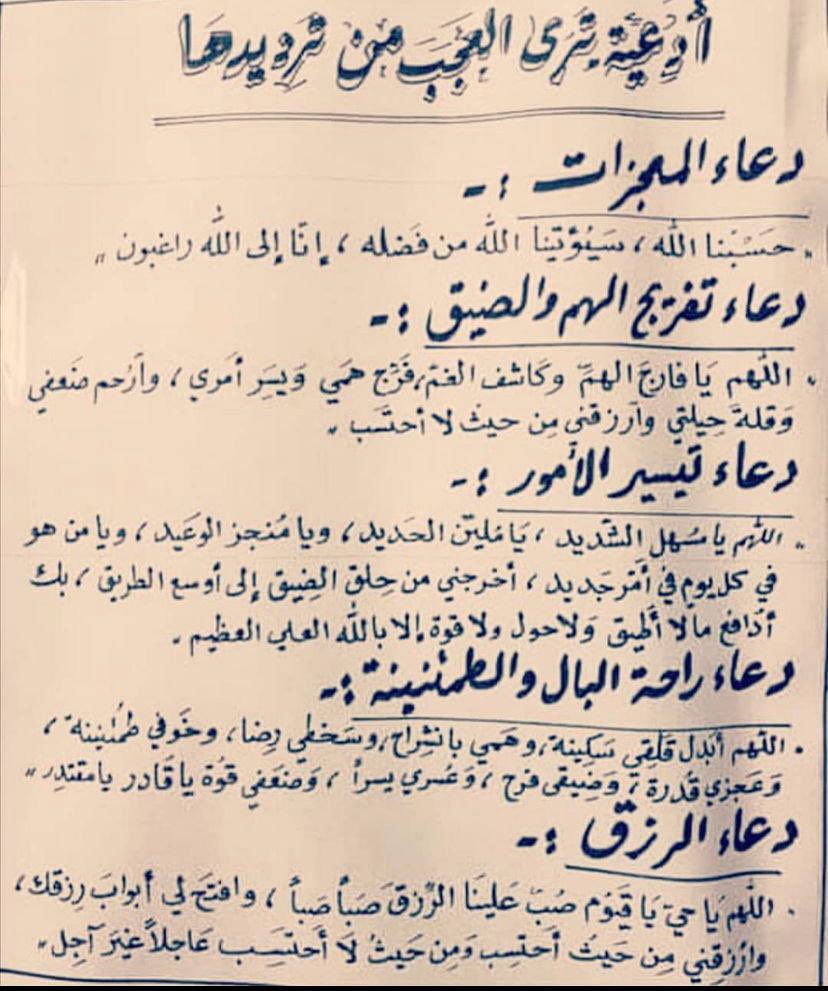 أدعية ترى العجب من ترديدها
دعاء المعجزات :-
" حَسْبنا الله ، سَيُؤتينا الله من فَضله ، إنّا إلى الله راغبون "
دعاء تفريج الهم والضيق :-
" اللهم يَا فارجَ الهمّ وكَاشف الغمّ ، فَرّج همَي وَيسَر أمري ، وأرحم ضَعفي
وَقلة حيلتي وأرزقني مِن حيثُ لا أحتَسب "
دعاء تيسير الأمور :-
" اللهم يا مسُهل الشّديد ، يَا مُليّن الحَديد ، ويا مُنجز الوعَيد ، ويا من هو
في كل يومٍ في أمَر جَديد ، أخرجني من حِلق الضِيق إلى أوسع الطريق ، بك
أدَافع مالا أطيق وَلاحول ولا قوة إلا بالله العلي العظيم .
دعاء راحة البال والطمئنينة :-
" اللهم أبدل قَلقي سَكينة ، وهمي بانشِراح ، وسَخطي رِضا ، وخَوفي طمُئنينة ،
وَعَجزي قُدرة ، وَضِيقى فرح ، وَعُسري يسراً ، وَضَعفي قوُة يا قَادر يامقتدِر "
دعاء الرزق :-
" اللهم يَا حيّ يَا قَيّوم صُبّ عَلينَا الرِّزقَ صَباً صَباً ، وافتحَ لي أبوابَ رِزقك ،
وارُزقِني مِن حَيثُ أحتسِب وَمِن حَيثُ لَا أَحتَسِب عَاجلاً غيَرَ آجِل "